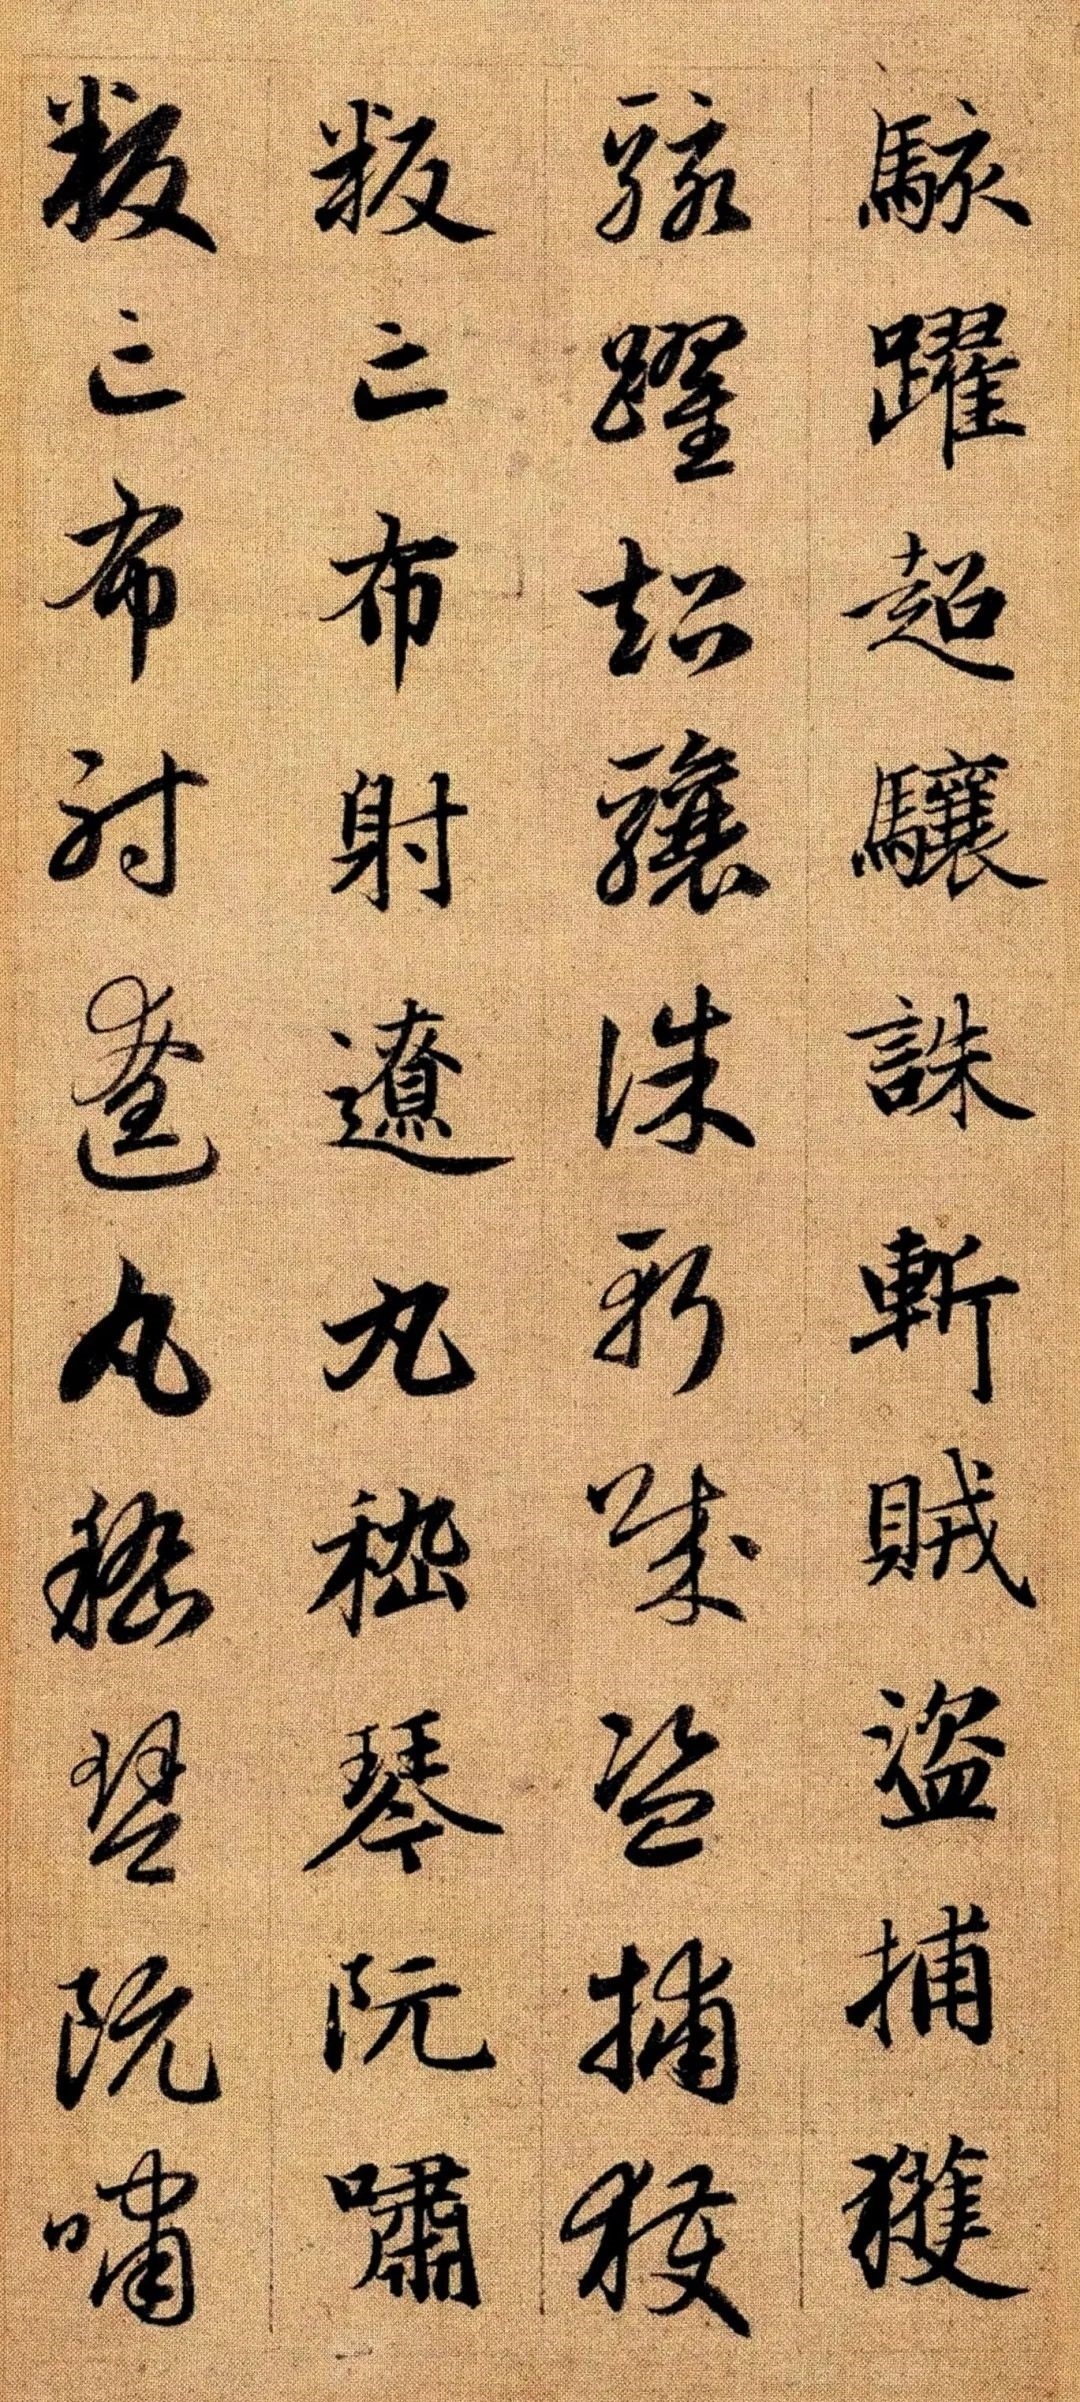 駭躍超驤誅斬賊盜捕獲
駭躍超驤誅斬賊盜捕獲
叛亡布射遼丸嵇琴阮嘯
叛亡布射遼丸嵇琴阮嘯